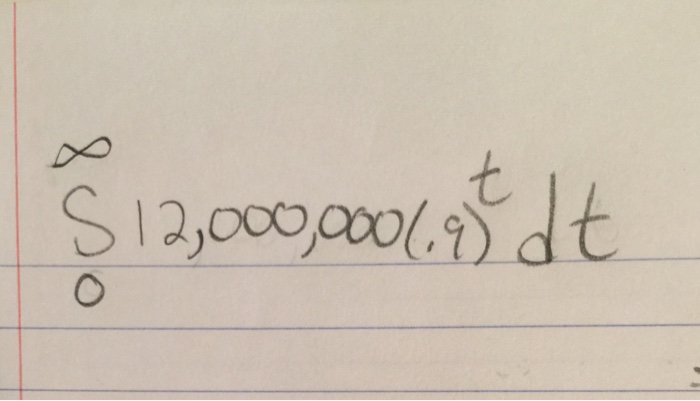 ∞
∫ 12,000,000(.9)^t dt
0